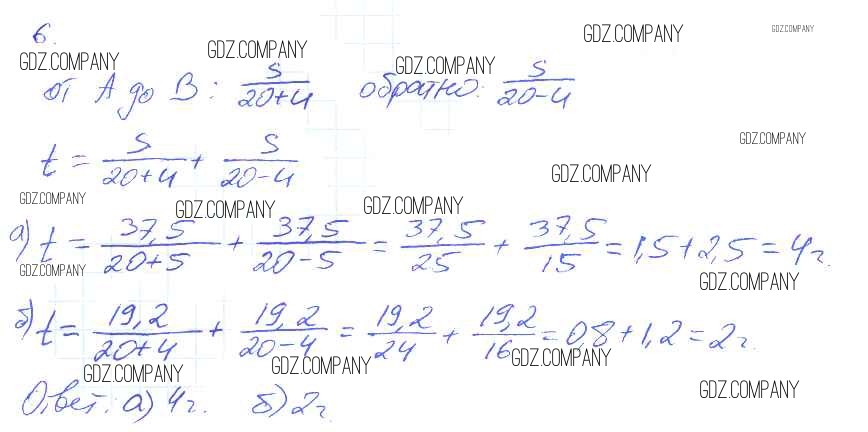 6.
GDZ.COMPANY GDZ.COMPANY GDZ.COMPANY GDZ.COMPANY GDZ.COMPANY
от A до B: S/(20+4) обратно: S/(20-4)
GDZ.COMPANY
t = S/(20+4) + S/(20-4)
GDZ.COMPANY
GDZ.COMPANY GDZ.COMPANY GDZ.COMPANY
а) t = 37,5/(20+5) + 37,5/(20-5) = 37,5/25 + 37,5/15 = 1,5+2,5=4ч.
GDZ.COMPANY GDZ.COMPANY
б) t = 19,2/(20+4) + 19,2/(20-4) = 19,2/24 + 19,2/16 = 0,8+1,2=2ч.
GDZ.COMPANY GDZ.COMPANY GDZ.COMPANY
Ответ: а) 4ч. б) 2ч.
GDZ.COMPANY